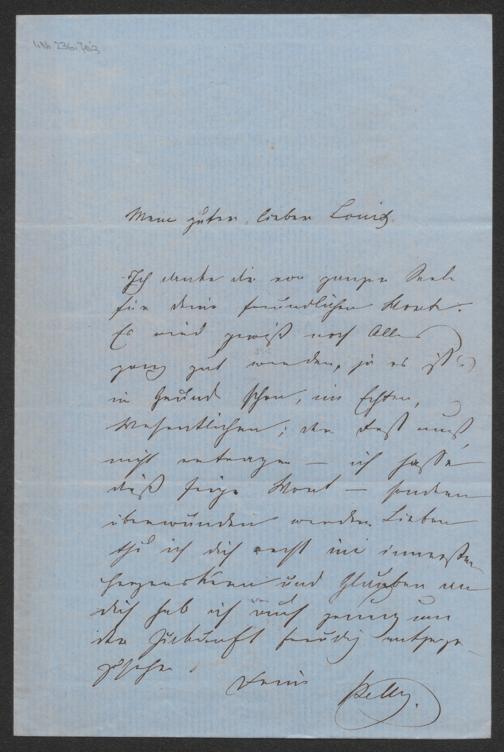 Mein guter, lieber Louis,
Ich danke dir von ganzer Seele
für deine freundlichen Worte.
Es wird gewiß noch Alles
ganz gut werden, ja es ist es
im Grund schon, im Echten,
Wesentlichen; der Rest muß
nicht ertragen — ich hasse
dieß feige Wort — sondern
überwunden werden. Lieben
thu ich dich recht im innersten
Herzenskern und Glauben an
dich hab ich auch genug um
der Zukunft freudig entgegen
zusehen.
Deine
Betty.